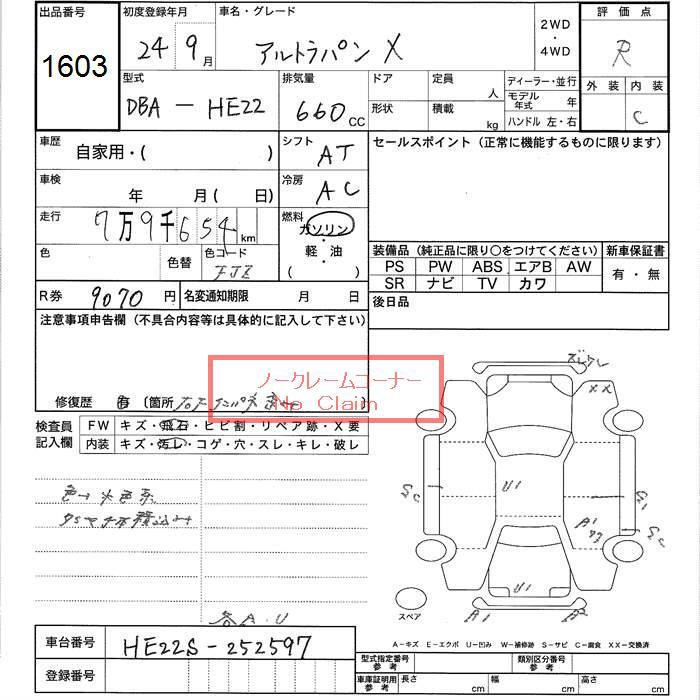 出品番号
1603
初度登録年月
24 9月
車名・グレード
アルトラパン X
2WD
・
4WD
評価点
R
外装 内装
C
型式
DBA - HE22
排気量
660 CC
ドア
形状
定員
人
積載
kg
ディーラー・並行
モデル年式 年
ハンドル 左・右
車歴
自家用・( )
シフト
AT
セールスポイント(正常に機能するものに限ります)
車検
年 月 ( 日)
冷房
AC
走行
7万9千654 km
燃料
ガソリン
・
軽・油
( )
色
色替
色コード
装備品(純正品に限り○をつけてください)
新車保証書
PS PW ABS エアB AW
SR ナビ TV カワ
有・無
R券
9070 円
名変通知期限 月 日
後日品
注意事項申告欄(不具合内容等は具体的に記入して下さい)
ノークレームコーナー
No Claim
修復歴 有 〔箇所
検査員
記入欄
FW キズ・飛石・ヒビ割・リペア跡・X要
内装 キズ・汚レ・コゲ・穴・スレ・キレ・破レ
色→水色系
XX
U1
A1
U1
A1
A2
スペア
各A.U
A-キズ E-エクボ U-凹み W-補修跡 S-サビ C-腐食 XX-交換済
車台番号
HE22S-252597
登録番号
型式指定番号
参考
類別区分番号
参考
車庫証明用
参考
長さ cm
幅 cm
高さ cm